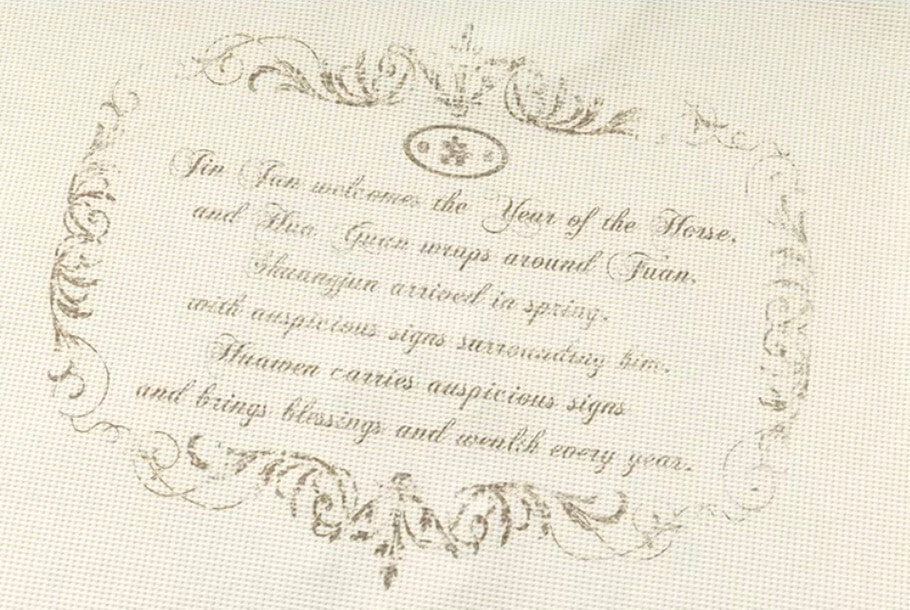 Jin Tan welcomes the Year of the Horse,
and Hua Guan wraps around Fuan.
Shuangjun arrived in spring,
with auspicious signs surrounding him.
Huawen carries auspicious signs
and brings blessings and wealth every year.